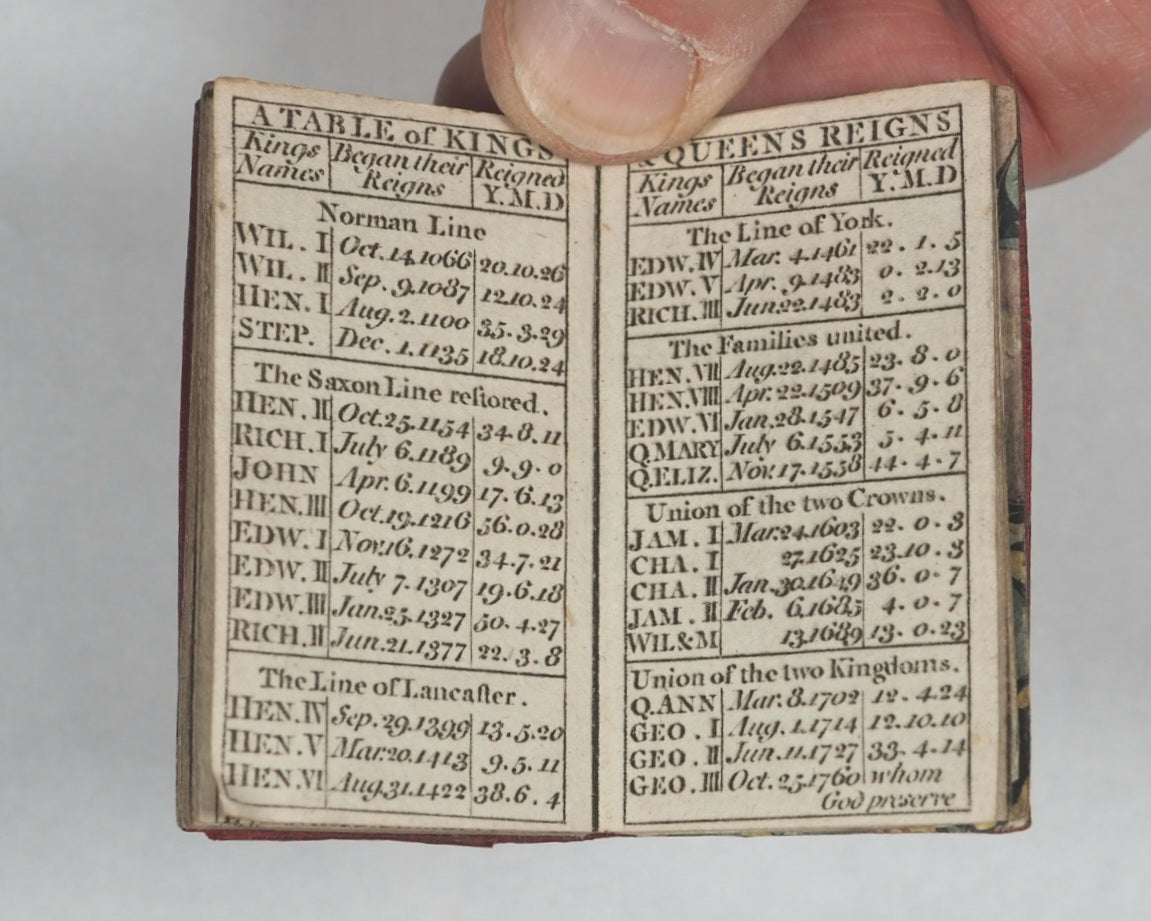 A TABLE of KINGS
Kings Names Began their Reigns Reigned Y.M.D
Norman Line
WIL. I Oct.14.1066 20.10.26
WIL. II Sep. 9.1087 12.10.24
HEN. I Aug.2.1100 35.3.29
STEP. Dec. 1.1135 18.10.24
The Saxon Line reſtored.
HEN. II Oct.25.1154 34.8.11
RICH. I July 6.1189 9.9.0
JOHN Apr.6.1199 17.6.13
HEN.III Oct.19.1216 56.0.28
EDW. I Nov.16.1272 34.7.21
EDW. II July 7.1307 19.6.18
EDW.III Jan.25.1327 50.4.27
RICH.II Jun.21.1377 22.3.8
The Line of Lancaſter.
HEN.IV Sep.29.1399 13.5.20
HEN.V Mar.20.1413 9.5.11
HEN.VI Aug.31.1422 38.6.4
& QUEENS REIGNS
Kings Names Began their Reigns Reigned Y.M.D
The Line of York.
EDW.IV Mar. 4.1461 22.1.5
EDW.V Apr. 9.1483 0.2.13
RICH.III Jun.22.1483 2.2.0
The Families united.
HEN.VII Aug.22.1485 23.8.0
HEN.VIII Apr.22.1509 37.9.6
EDW.VI Jan.28.1547 6.5.8
Q.MARY July 6.1553 5.4.11
Q.ELIZ. Nov.17.1558 44.4.7
Union of the two Crowns.
JAM. I Mar.24.1603 22.0.3
CHA. I 27.1625 23.10.3
CHA. II Jan.30.1649 36.0.7
JAM. II Feb. 6.1685 4.0.7
WIL&M 13.1689 13.0.23
Union of the two Kingdoms.
Q.ANN Mar.8.1702 12.4.24
GEO. I Aug.1.1714 12.10.10
GEO. II Jun.11.1727 33.4.14
GEO.III Oct.25.1760 whom
God preserve